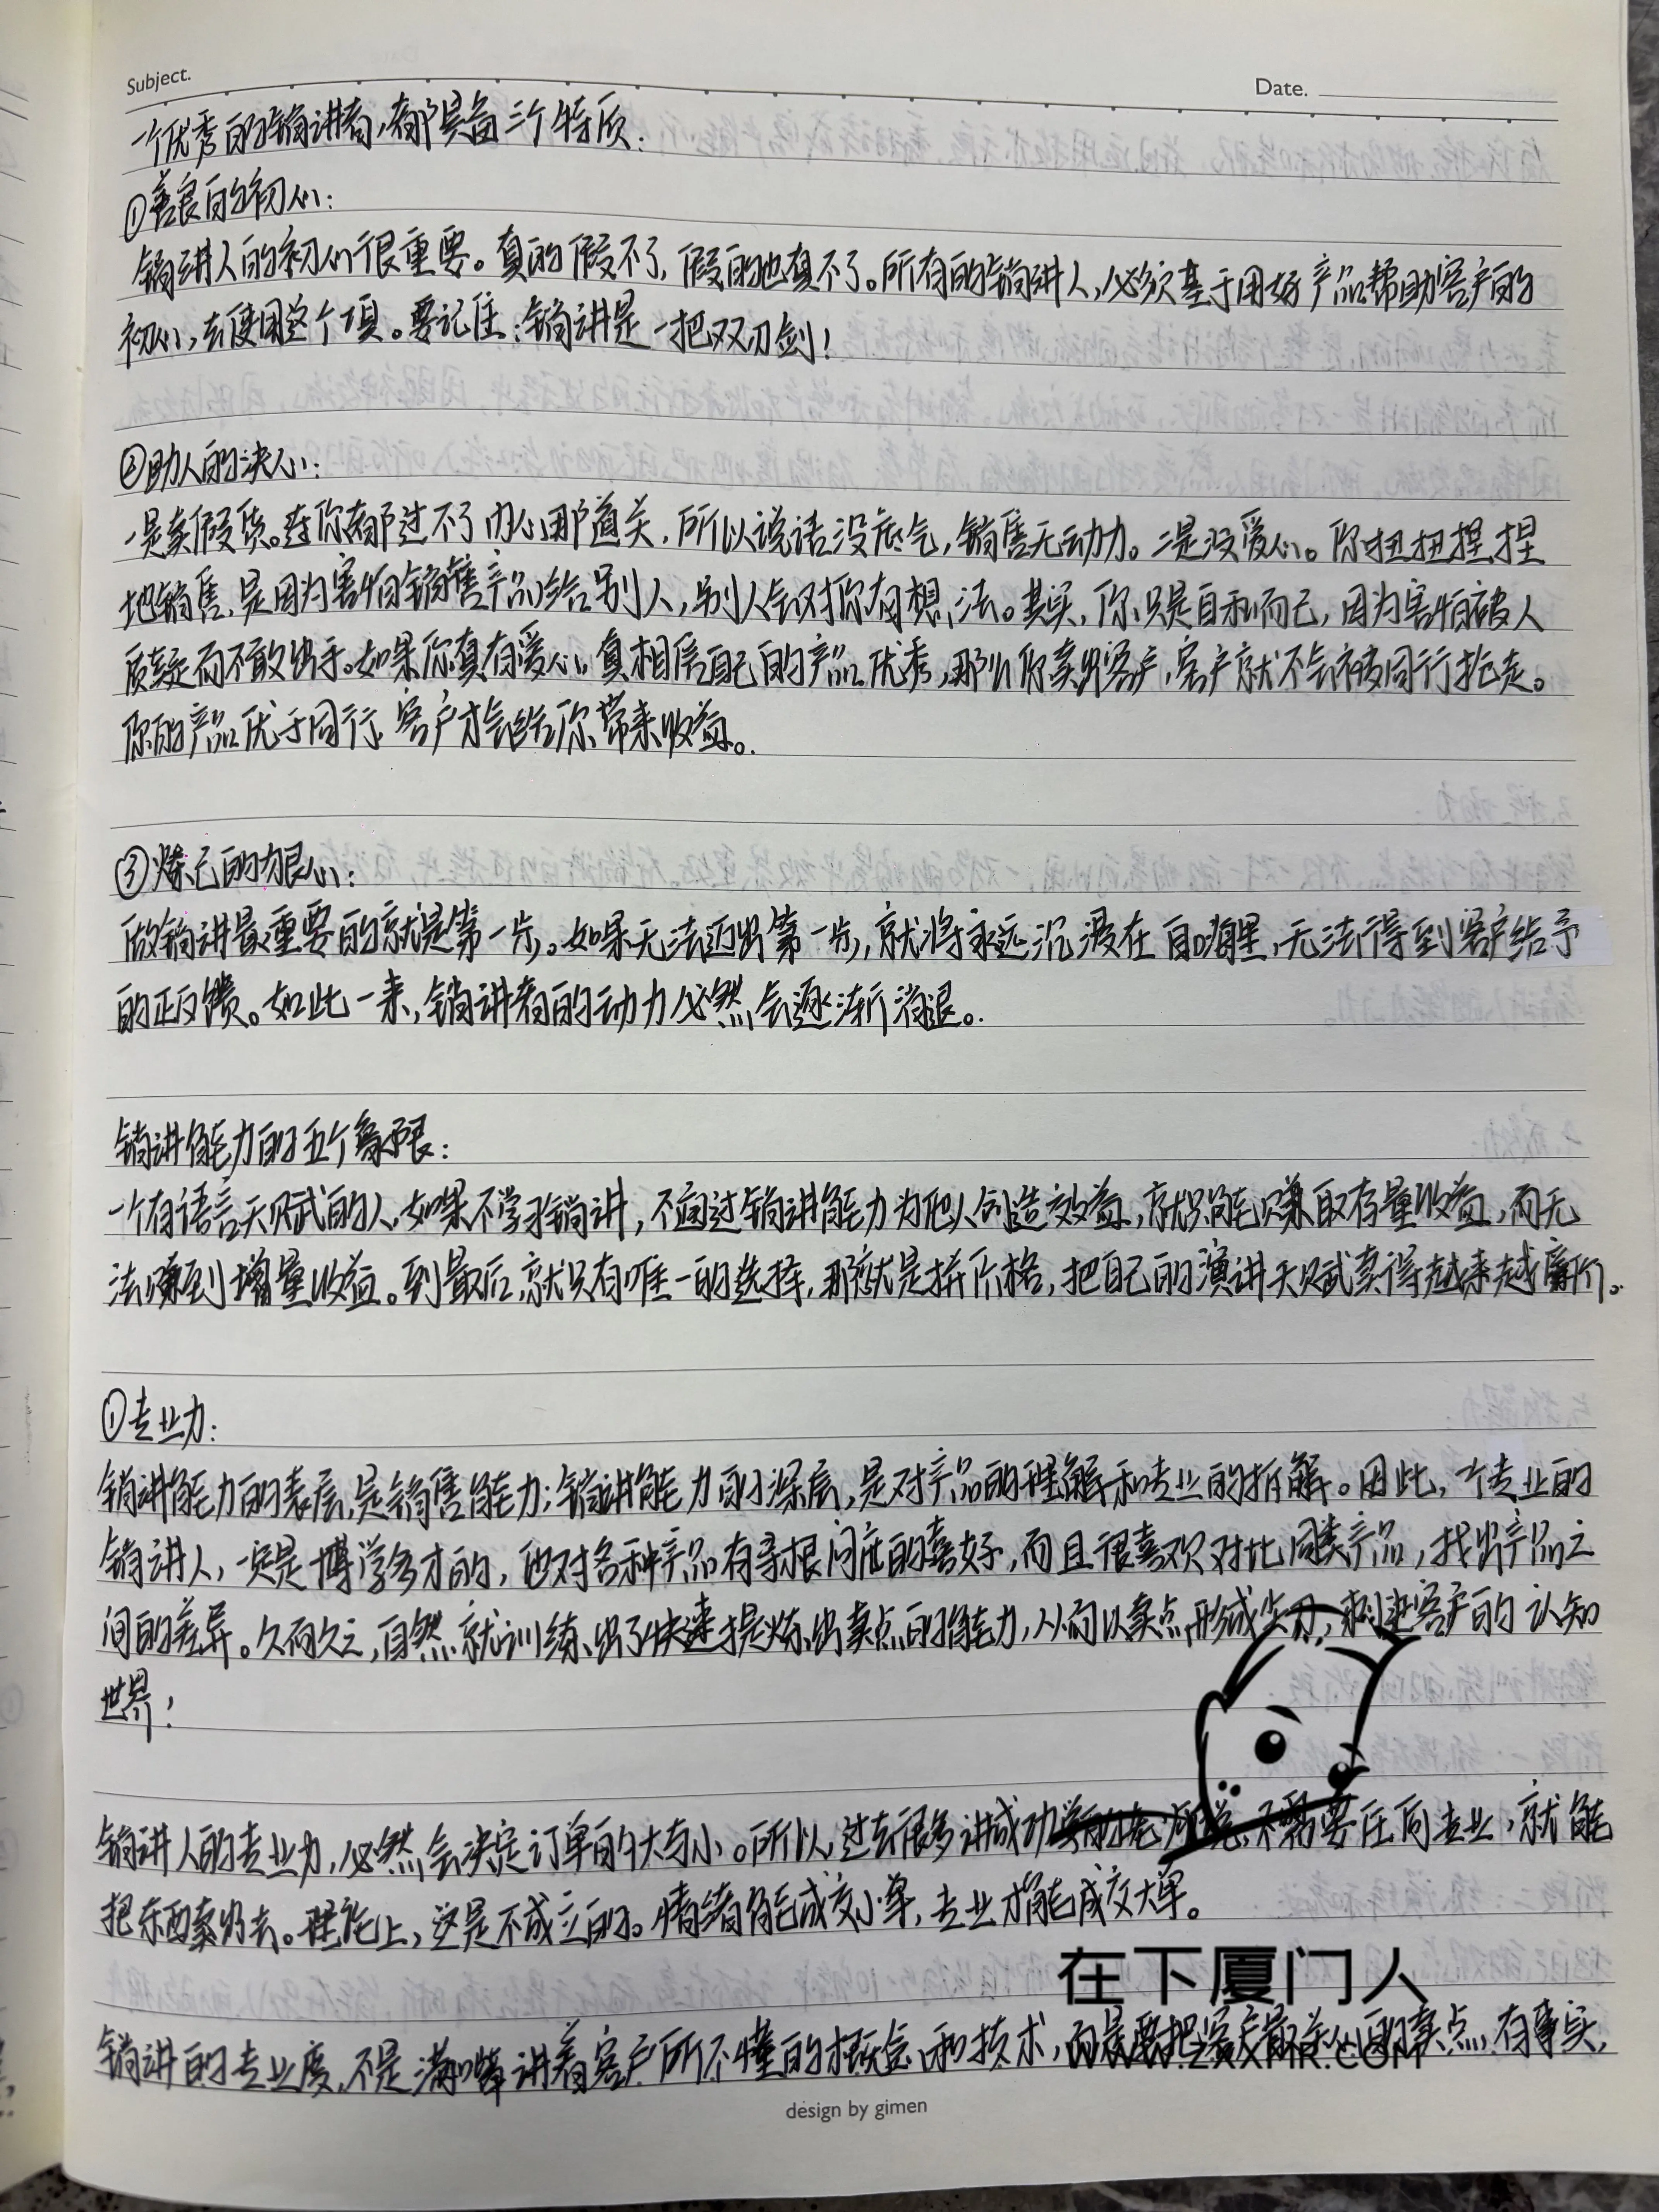 Subject.
Date.
一个优秀的销讲者,都具备三个特质:
①善良的初心:
销讲人的初心很重要。真的假不了,假的也真不了。所有的销讲人,必须基于用好产品帮助客户的
初心,去使用这个项。要记住:销讲是一把双刃剑!
②助人的决心:
一是卖假货。连你都过不了内心那道关,所以说话没底气,销售无动力。二是没爱心。你扭扭捏捏
地销售,是因为害怕销售产品给别人,别人会对你有想法。其实,你只是自私而已,因为害怕被人
质疑而不敢出手。如果你真有爱心,真相信自己的产品优秀,那么你卖出客户,客户就不会被同行抢走。
你的产品优于同行,客户才会给你带来收益。
③炼己的狠心:
做销讲最重要的就是第一步。如果无法迈出第一步,就将永远沉浸在自嗨里,无法得到客户给予
的正反馈。如此一来,销讲者的动力必然会逐渐消退。
销讲能力的五个象限:
一个有语言天赋的人,如果不学习销讲,不通过销讲能力为他人创造效益,就只能赚取存量收益,而无
法赚到增量收益。到最后,就只有唯一的选择,那就是拼价格,把自己的演讲天赋卖得越来越廉价。
①专业力:
销讲能力的表层,是销售能力;销讲能力的深层,是对产品的理解和专业的拆解。因此,一个专业的
销讲人,一定是博学多才的,他对各种产品有寻根问底的喜好,而且很喜欢对比同类产品,找出产品之
间的差异。久而久之,自然就训练出了快速提炼出卖点的能力,从而以卖点形成尖刀,刺进客户的认知
世界!
销讲人的专业力,必然会决定订单的大与小。所以,过去很多讲成功学的老师说,不需要任何专业,就能
把东西卖出去。理论上,这是不成立的。情绪能成交小单,专业才能成交大单。
在下厦门人
销讲的专业度,不是满嘴讲着客户所不懂的概念和技术,而是要把客户最关心的卖点,有事实,
WWW.ZXXMR.COM
design by gimen